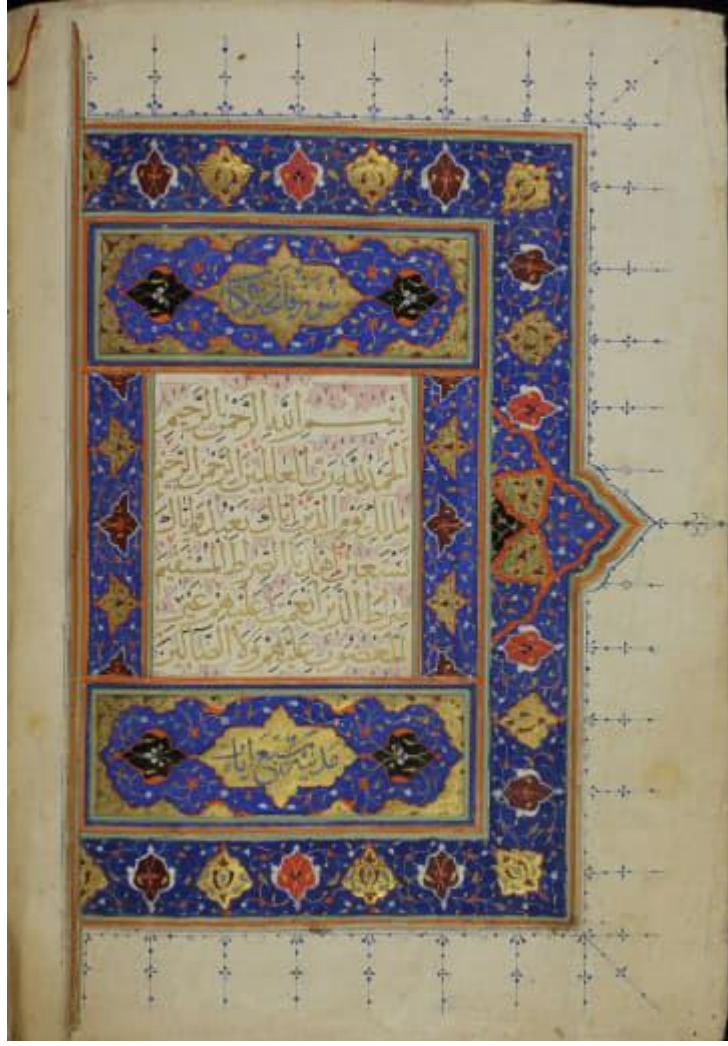 سورة فاتحة الكتاب
بِسْمِ اللَّهِ الرَّحْمَٰنِ الرَّحِيمِ
الْحَمْدُ لِلَّهِ رَبِّ الْعَالَمِينَ الرَّحْمَٰنِ الرَّحِيمِ
مَالِكِ يَوْمِ الدِّينِ إِيَّاكَ نَعْبُدُ وَإِيَّاكَ
نَسْتَعِينُ اهْدِنَا الصِّرَاطَ الْمُسْتَقِيمَ
صِرَاطَ الَّذِينَ أَنْعَمْتَ عَلَيْهِمْ غَيْرِ
الْمَغْضُوبِ عَلَيْهِمْ وَلَا الضَّالِّينَ
مدنية سبع ايات